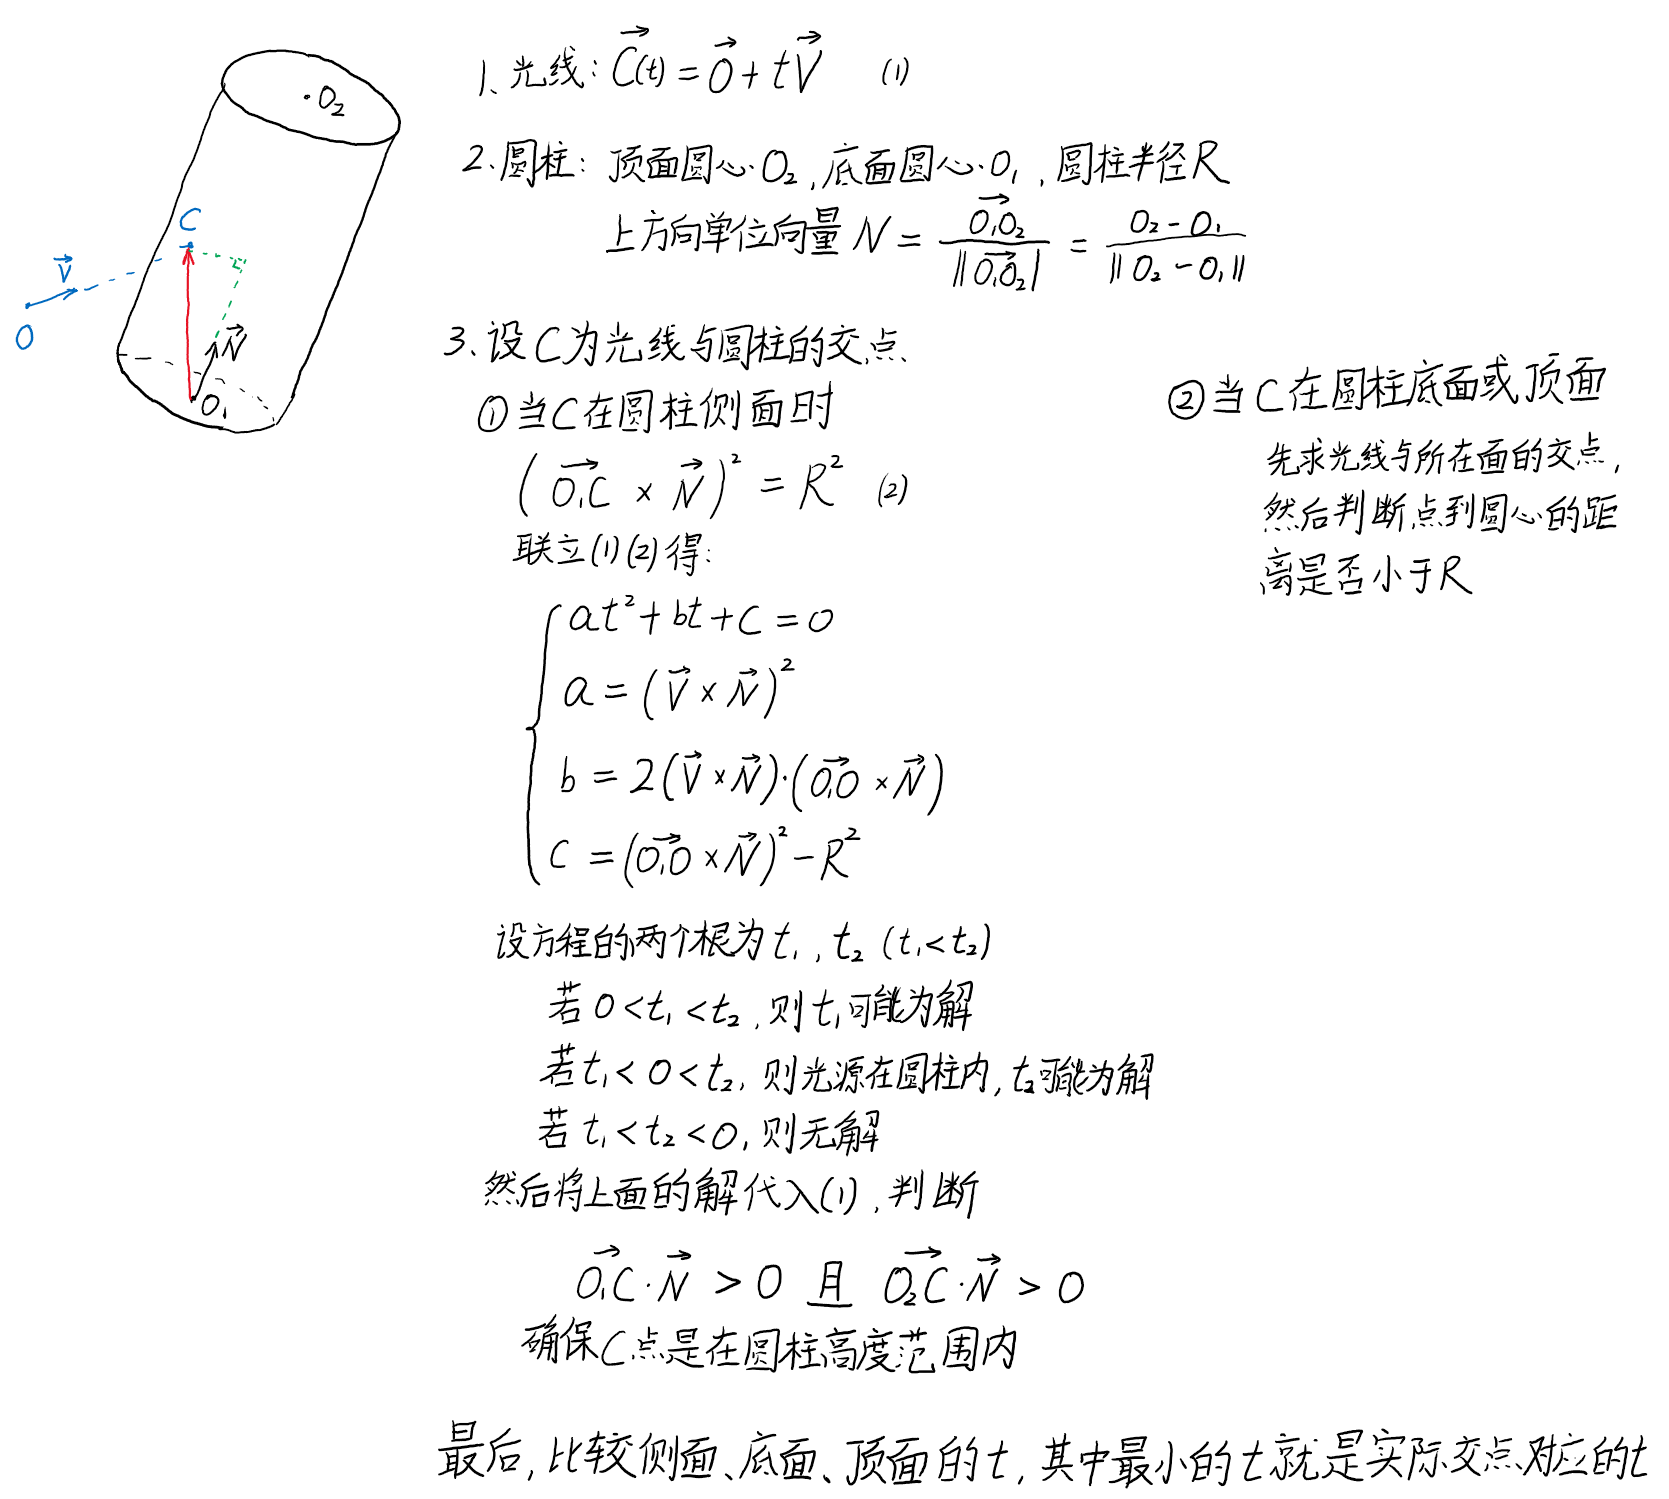 O₂
C
V⃗
O
N⃗
O₁
1、光线: C⃗(t) = O⃗ + tV⃗ (1)
2、圆柱: 顶面圆心O₂, 底面圆心O₁, 圆柱半径R
上方向单位向量 N = O₁O₂⃗ / ||O₁O₂⃗|| = (O₂ - O₁) / ||O₂ - O₁||
3、设C为光线与圆柱的交点
①当C在圆柱侧面时
(O₁C⃗ × N⃗)² = R² (2)
联立(1)(2)得:
at² + bt + C = 0
a = (V⃗ × N⃗)²
b = 2(V⃗ × N⃗)·(O₁O⃗ × N⃗)
C = (O₁O⃗ × N⃗)² - R²
设方程的两个根为t₁, t₂ (t₁<t₂)
若 0<t₁<t₂, 则t₁可能为解
若t₁<0<t₂, 则光源在圆柱内, t₂可能为解
若 t₁<t₂<0, 则无解
然后将上面的解代入(1), 判断
O₁C⃗·N⃗ > 0 且 O₂C⃗·N⃗ > 0
确保C点是在圆柱高度范围内
②当C在圆柱底面或顶面
先求光线与所在面的交点,
然后判断点到圆心的距
离是否小于R
最后, 比较侧面、底面、顶面的t, 其中最小的t就是实际交点对应的t